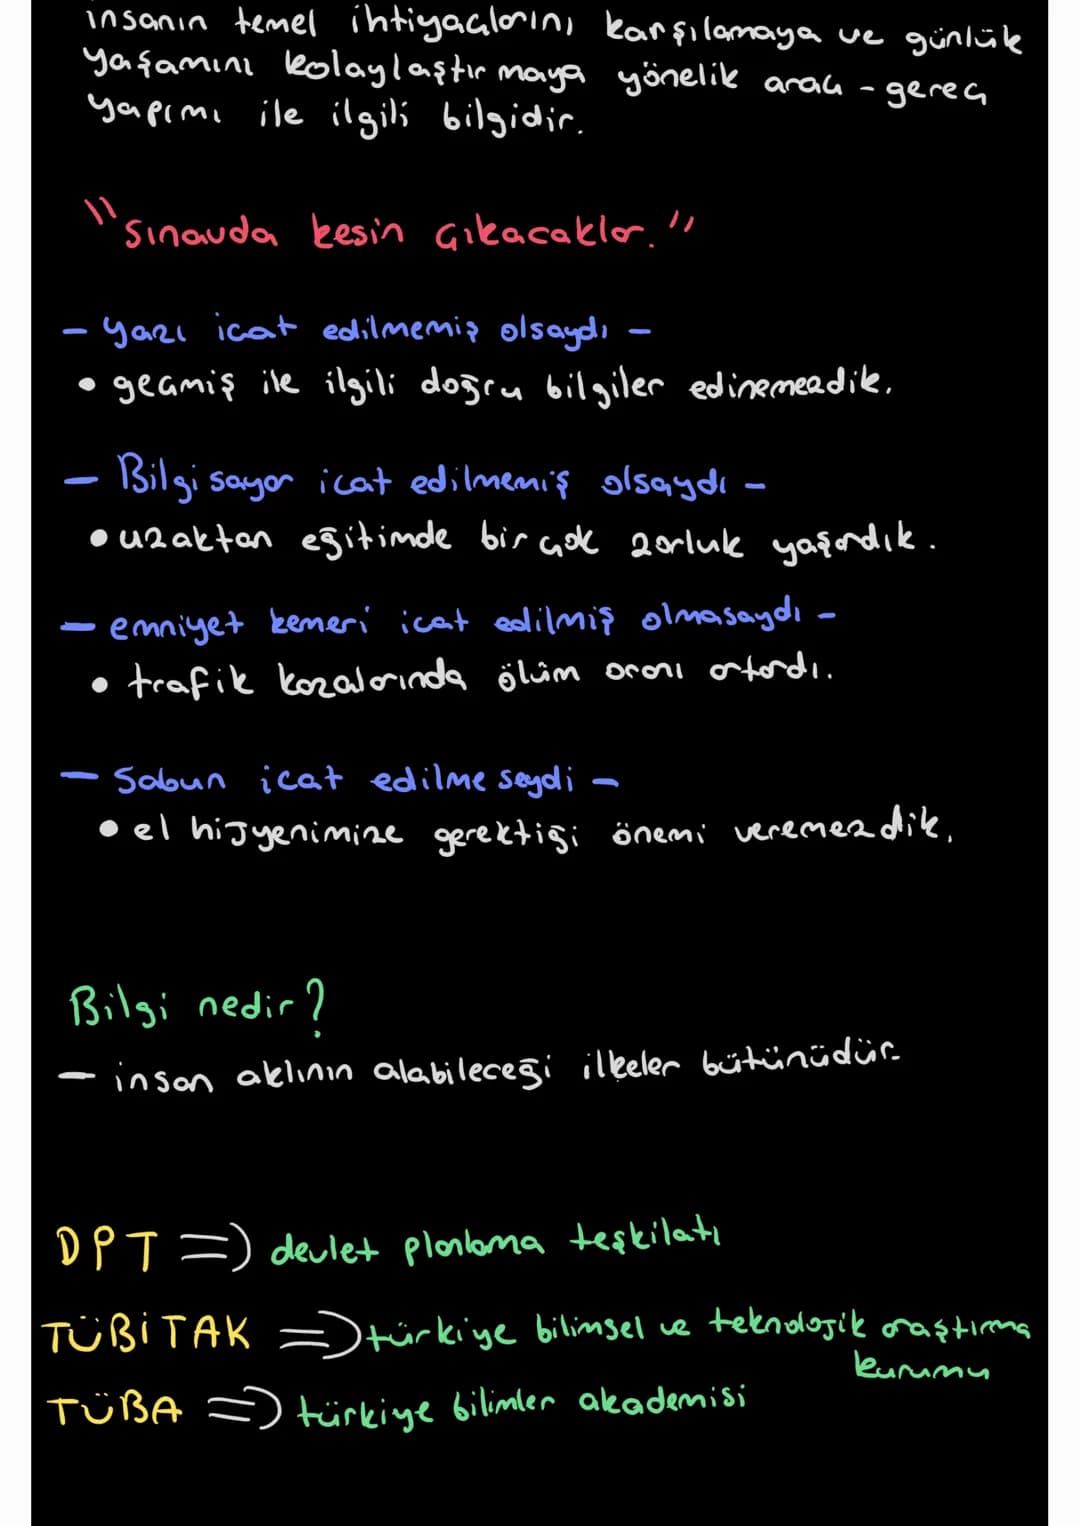 insanın temel ihtiyaçlarını karşılamaya ve günlük
yaşamını kolaylaştırmaya yönelik araç - gereç
yapımı ile ilgili bilgidir.
"Sınavda kesin çıkacaklar."
- yazı icat edilmemiş olsaydı -
• geçmiş ile ilgili doğru bilgiler edinemezdik.
- Bilgisayar icat edilmemiş olsaydı -
• uzaktan eğitimde birçok zorluk yaşardık.
- emniyet kemeri icat edilmiş olmasaydı -
• trafik kazalarında ölüm oranı artardı.
- Sabun icat edilmeseydi -
• el hijyenimize gerektiği önemi veremezdik.
Bilgi nedir?
- insan aklının alabileceği ilkeler bütünüdür.
DPT => devlet planlama teşkilatı
TÜBİTAK => türkiye bilimsel ve teknolojik araştırma
kurumu
TÜBA => türkiye bilimler akademisi